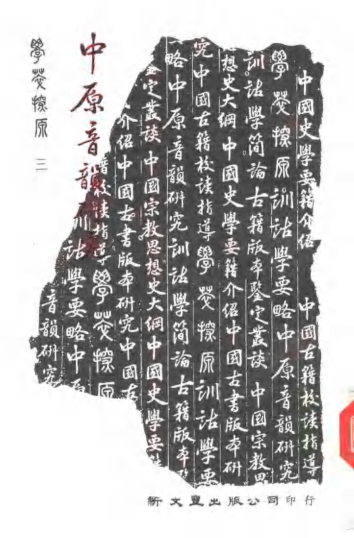 中國史學要籍介紹 中國古籍校讀指導
學萃探原訓詁學要略中原音韻研究
訓詁學簡論古籍版本鑒定叢談 中國宗教思
想史大綱中國史學要籍介紹中國古書版本研
究中國古籍校讀指導學萃探原訓詁學要
略中原音韻研究訓詁學簡論古籍版本
鑒定叢談中國宗教思想史大綱中國史學要籍
介紹中國古書版本研究中國古
籍校讀指導學萃探原
訓詁學要略中原
音韻研究
中原音韻研究
學萃探原 三
新文豐出版公司印行